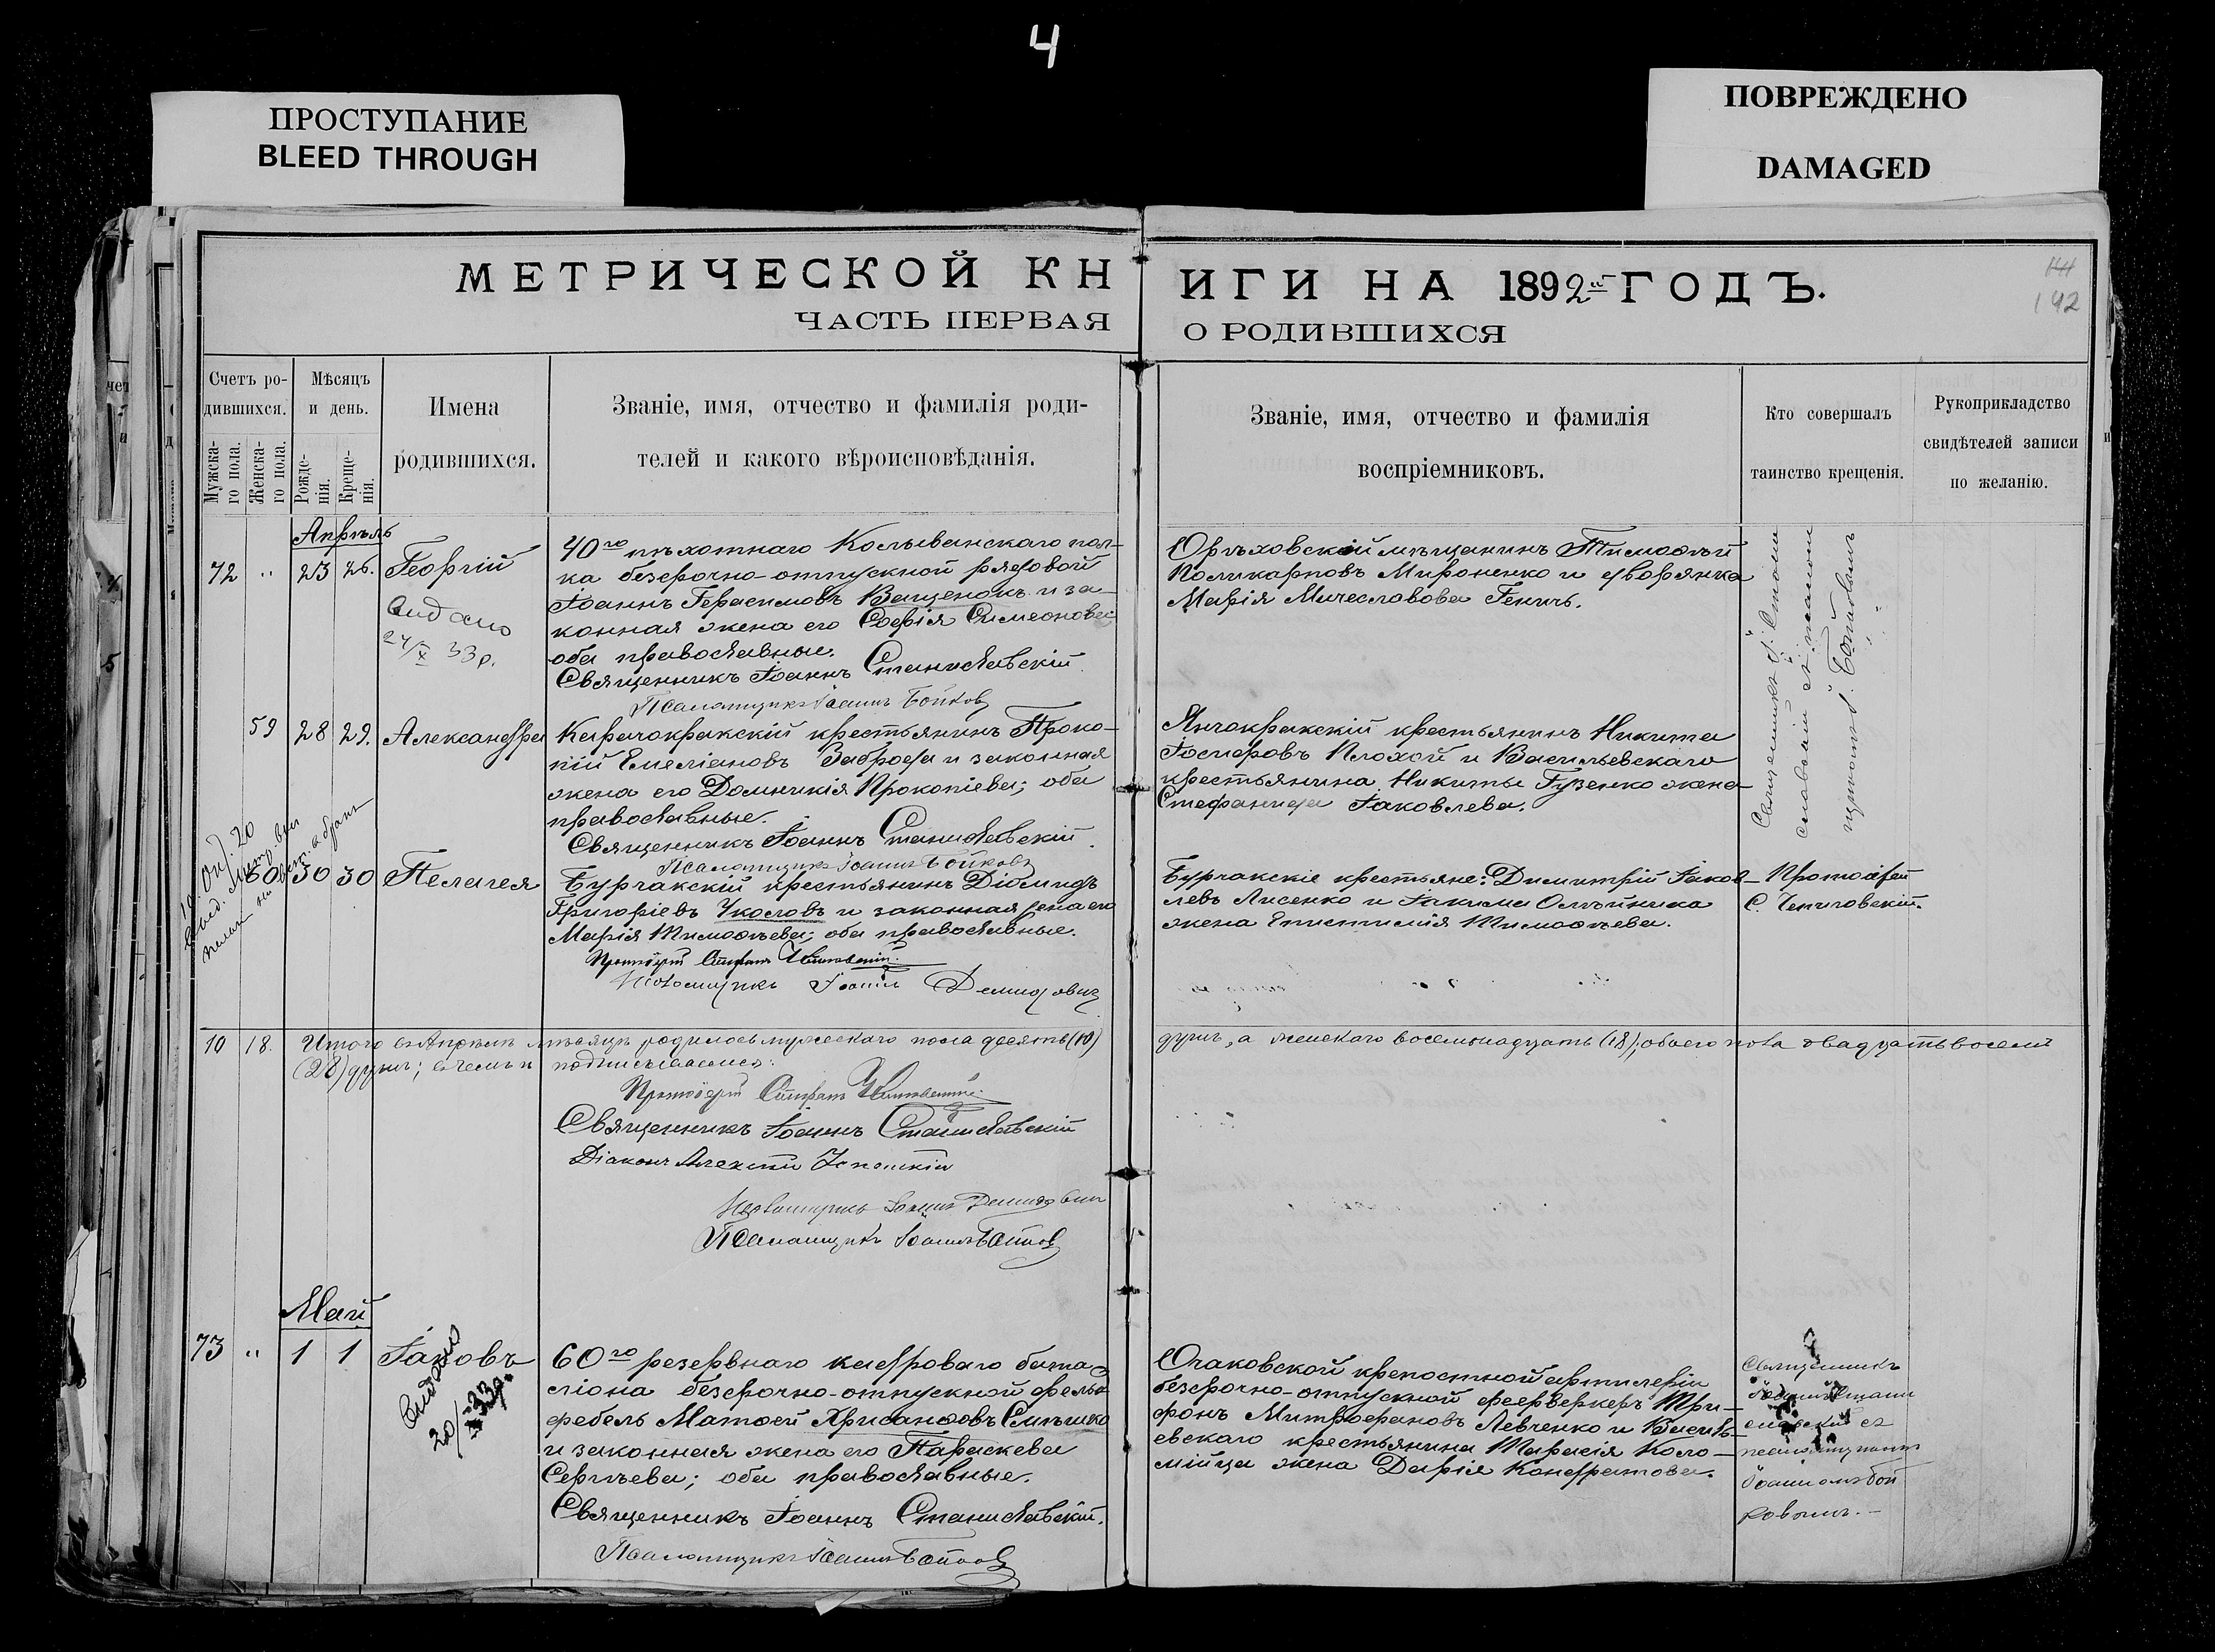 4
ПРОСТУПАНИЕ
BLEED THROUGH
ПОВРЕЖДЕНО
DAMAGED
МЕТРИЧЕСКОЙ КН
ИГИ НА 1892й ГОДЪ.
142
ЧАСТЬ ПЕРВАЯ
О РОДИВШИХСЯ
Счетъ ро-
дившихся.
Мужска-
го пола.
Женска-
го пола.
Мѣсяцъ
и день.
Рожде-
нія.
Креще-
нія.
Имена
родившихся.
Званіе, имя, отчество и фамилія роди-
телей и какого вѣроисповѣданія.
Званіе, имя, отчество и фамилія
воспріемниковъ.
Кто совершалъ
таинство крещенія.
Рукоприкладство
свидѣтелей записи
по желанію.
Апрѣль
72 " 23 26. Георгій
Видано
24/X 33 р.
40го пѣхотнаго Колыванскаго пол-
ка безсрочно-отпускной рядовой
Іоаннъ Герасимовъ Ващенокъ и за-
конная жена его Софія Симеонова
оба православные.
Священникъ Іоаннъ Станиславскій
Псаломщикъ Іоаннъ Бойковъ
Орѣховскій мѣщанинъ Тимоѳей
Поликарповъ Мироненко и дворянка
Марія Мичеславова Геничъ.
Священникъ І. Стани
славскій съ псалом
щикомъ І. Бойковымъ
59 28 29. Александра
Карачокракскій крестьянинъ Проко-
пій Емеліановъ Заброда и законная
жена его Домникія Прокопіева; оба
православные.
Священникъ Іоаннъ Станиславскій.
Псаломщикъ Іоаннъ Бойковъ
Янчокракскій крестьянинъ Никита
Іосифовъ Плохой и Васильевскаго
крестьянина Никиты Гузенко жена
Стефанида Іаковлева.
60 30 30 Пелагея
Бурчакскій крестьянинъ Діомидъ
Григоріевъ Укословъ и законная жена его
Марія Тимоѳѣева; оба православные.
Протоіерей Стефанъ
Псаломщикъ Іоаннъ Демидовичъ
Бурчакскіе крестьяне: Димитрій Іаков-
левъ Лисенко и Іакима Олѣйника
жена Епистимія Тимоѳѣева.
Протоіерей
С.
10 18. Итого въ Апрѣлѣ мѣсяцѣ родилось мужескаго пола десять (10)
душъ, а женскаго восемнадцать (18), обоего пола двадцать восемь
(28) душъ; въ чемъ и подписываемся:
Протоіерей Стефанъ
Священникъ Іоаннъ Станиславскій
Діаконъ Алексій
Псаломщикъ Іоаннъ Демидовичъ
Псаломщикъ Іоаннъ Бойковъ
Май
73 " 1 1 Іаковъ
Видано
60го резервнаго кадроваго бата-
ліона безсрочно-отпускной фельд
фебель Матѳей Хрисанѳовъ Смѣшко
и законная жена его Параскева
Сергѣева; оба православные.
Священникъ Іоаннъ Станиславскій.
Псаломщикъ Іоаннъ Бойковъ
Очаковской крепостной артилеріи
безсрочно-отпускной феерверкеръ Три-
фонъ Митрофановъ Левченко и Василь-
евскаго крестьянина Тарасія Коло-
мійца жена Дарія Кондратова.
Священникъ
Іоаннъ Стани
славскій съ
псаломщикомъ
Іоанномъ Бой
ковымъ.-